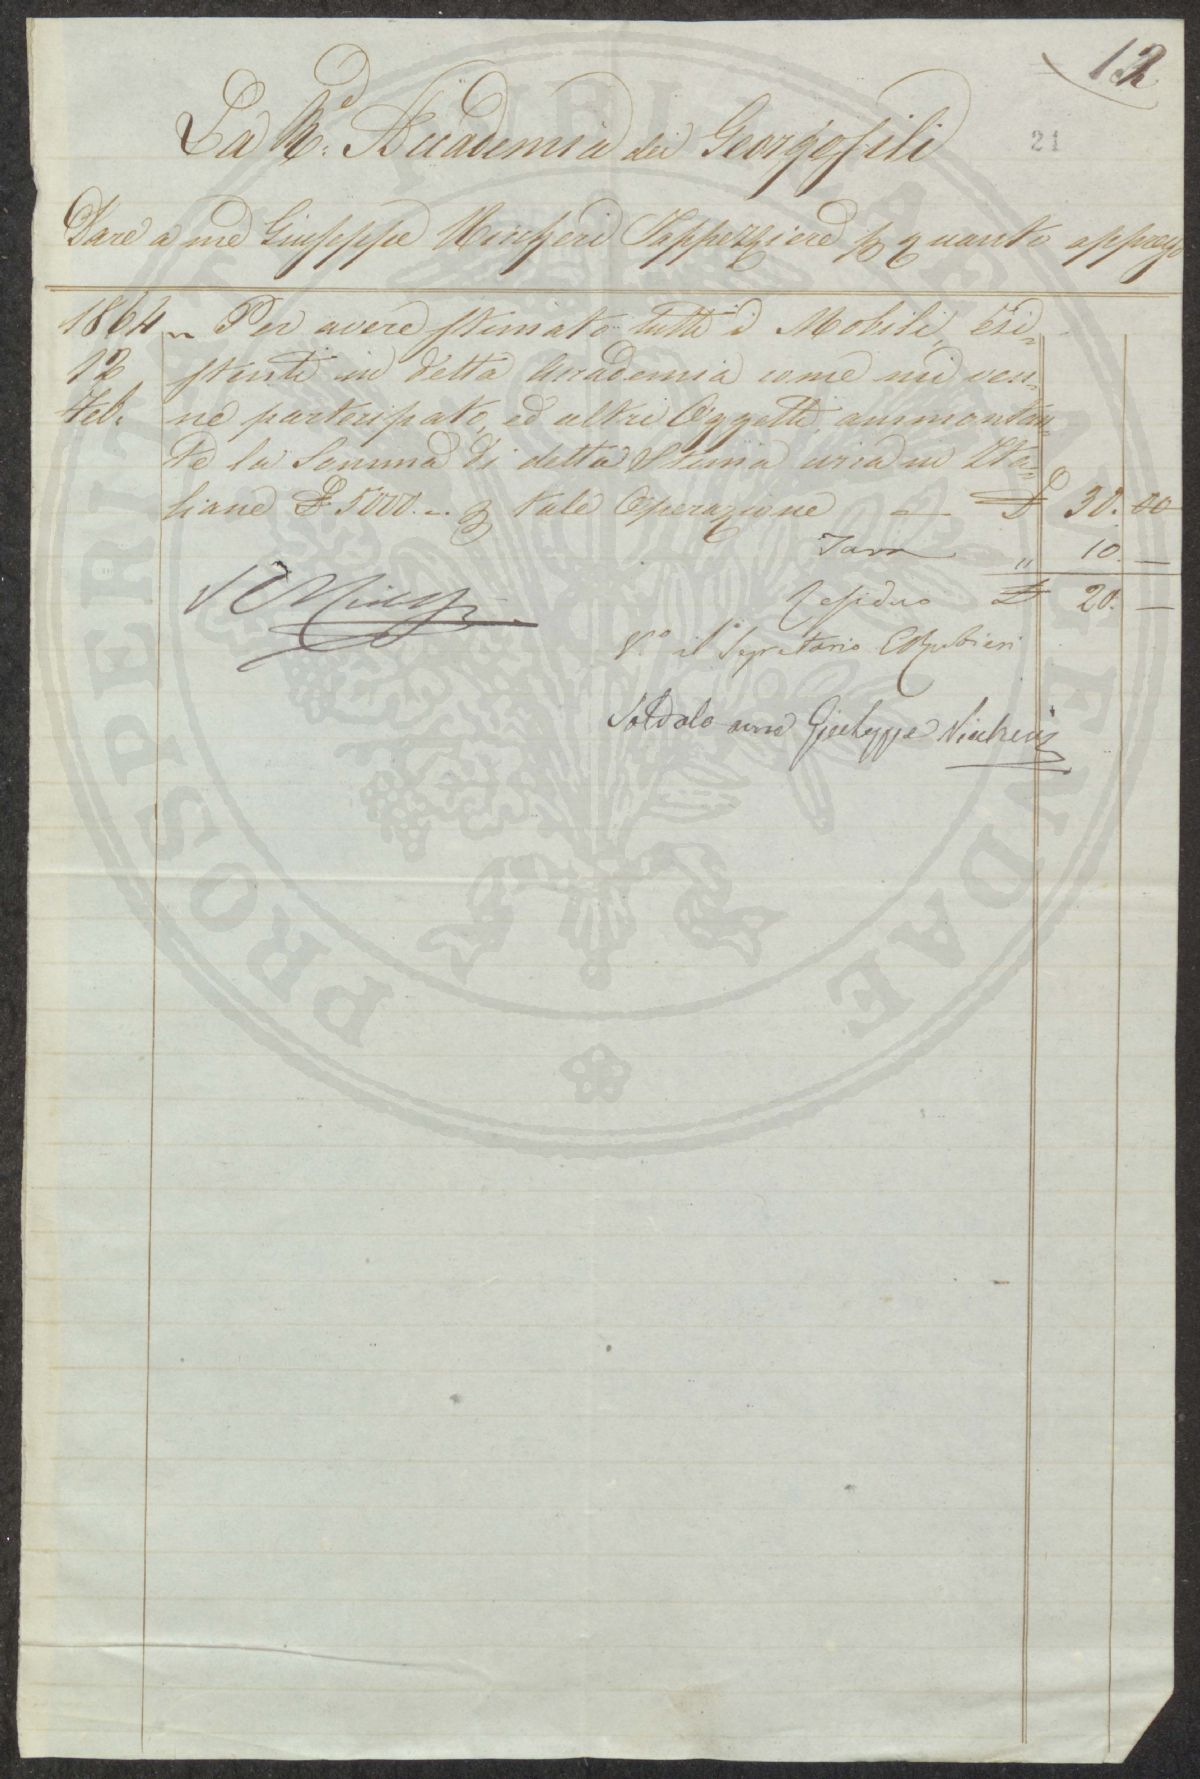 12
21
La R.e Accademia dei Georgofili
Dare a me Giuseppe Tappezziere p quanto appresso
1864 Per avere stimato tutti i Mobili, esi=
12 stenti in detta Accademia come mi ven=
Feb. ne partecipato, ed altri Oggetti, ammontan=
te la Somma di detta Stima circa in Ita=
liane £ 5000. - p tale Operazione — £ 30. 00
Tara " 10. —
Residuo £ 20. —
V.o il Segretario E Rubieri
Saldato come Giuseppe
PROSPERITATI PUBLICAE AUGENDAE